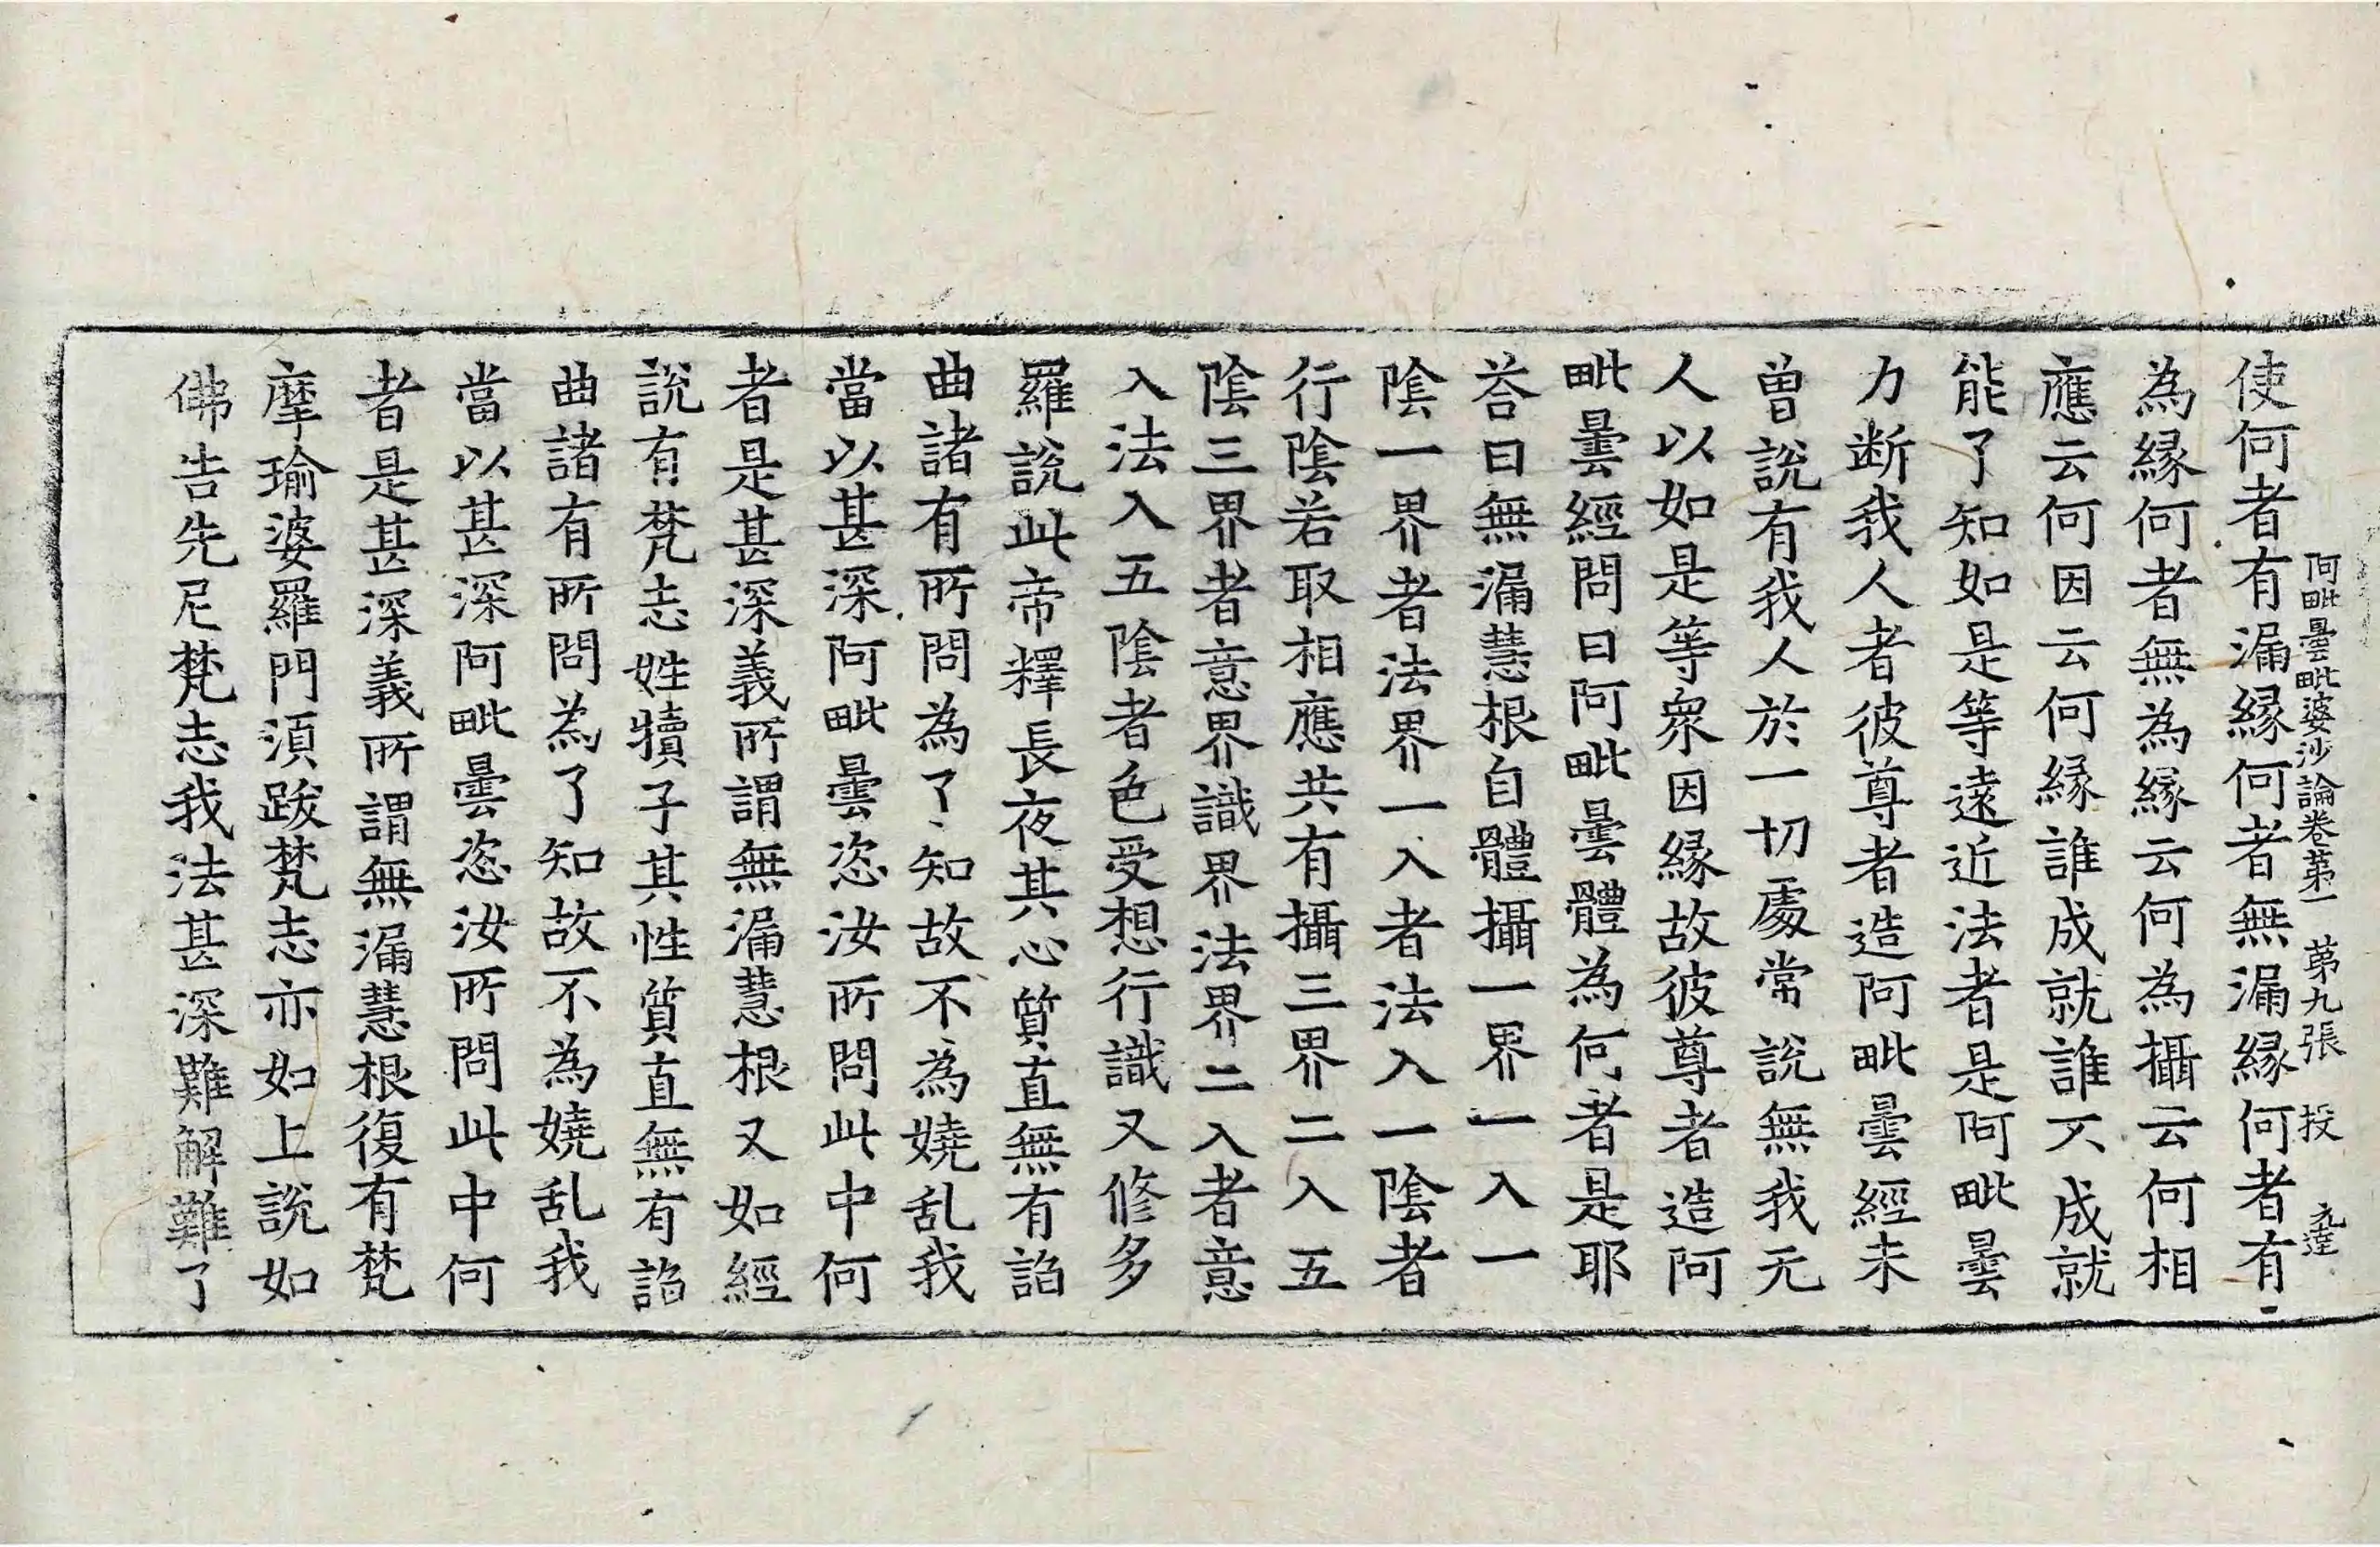 阿毗曇毗婆沙論卷苐一 苐九張 投 元達
使何者有漏縁何者無漏縁何者有
為縁何者無為縁云何為攝云何相
應云何因云何縁誰成就誰不成就
能了知如是等遠近法者是阿毗曇
力断我人者彼尊者造阿毗曇經未
曾說有我人於一切處常說無我无
人以如是等衆因縁故彼尊者造阿
毗曇經問曰阿毗曇體為何者是耶
荅曰無漏慧根自體攝一界一入一
陰一界者法界一入者法入一陰者
行陰若取相應共有攝三界二入五
陰三界者意界識界法界二入者意
入法入五陰者色受想行識又修多
羅說此帝釋長夜其心質直無有諂
曲諸有所問為了知故不為嬈乱我
當以甚深阿毗曇恣汝所問此中何
者是甚深義所謂無漏慧根又如經
說有梵志姓犢子其性質直無有諂
曲諸有所問為了知故不為嬈乱我
當以甚深阿毗曇恣汝所問此中何
者是甚深義所謂無漏慧根復有梵
摩瑜婆羅門湏跋梵志亦如上說如
佛告先尼梵志我法甚深難解難了